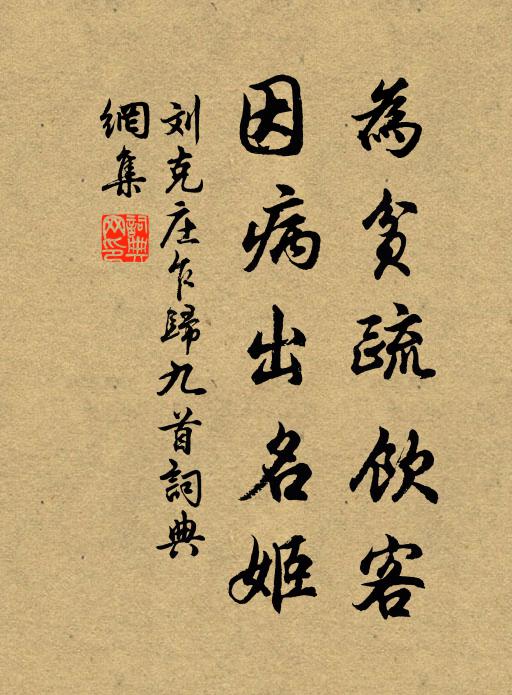 為貧疏飲客
因病出名姬
刘克庄乍歸九首詞典
網集
詞典網印